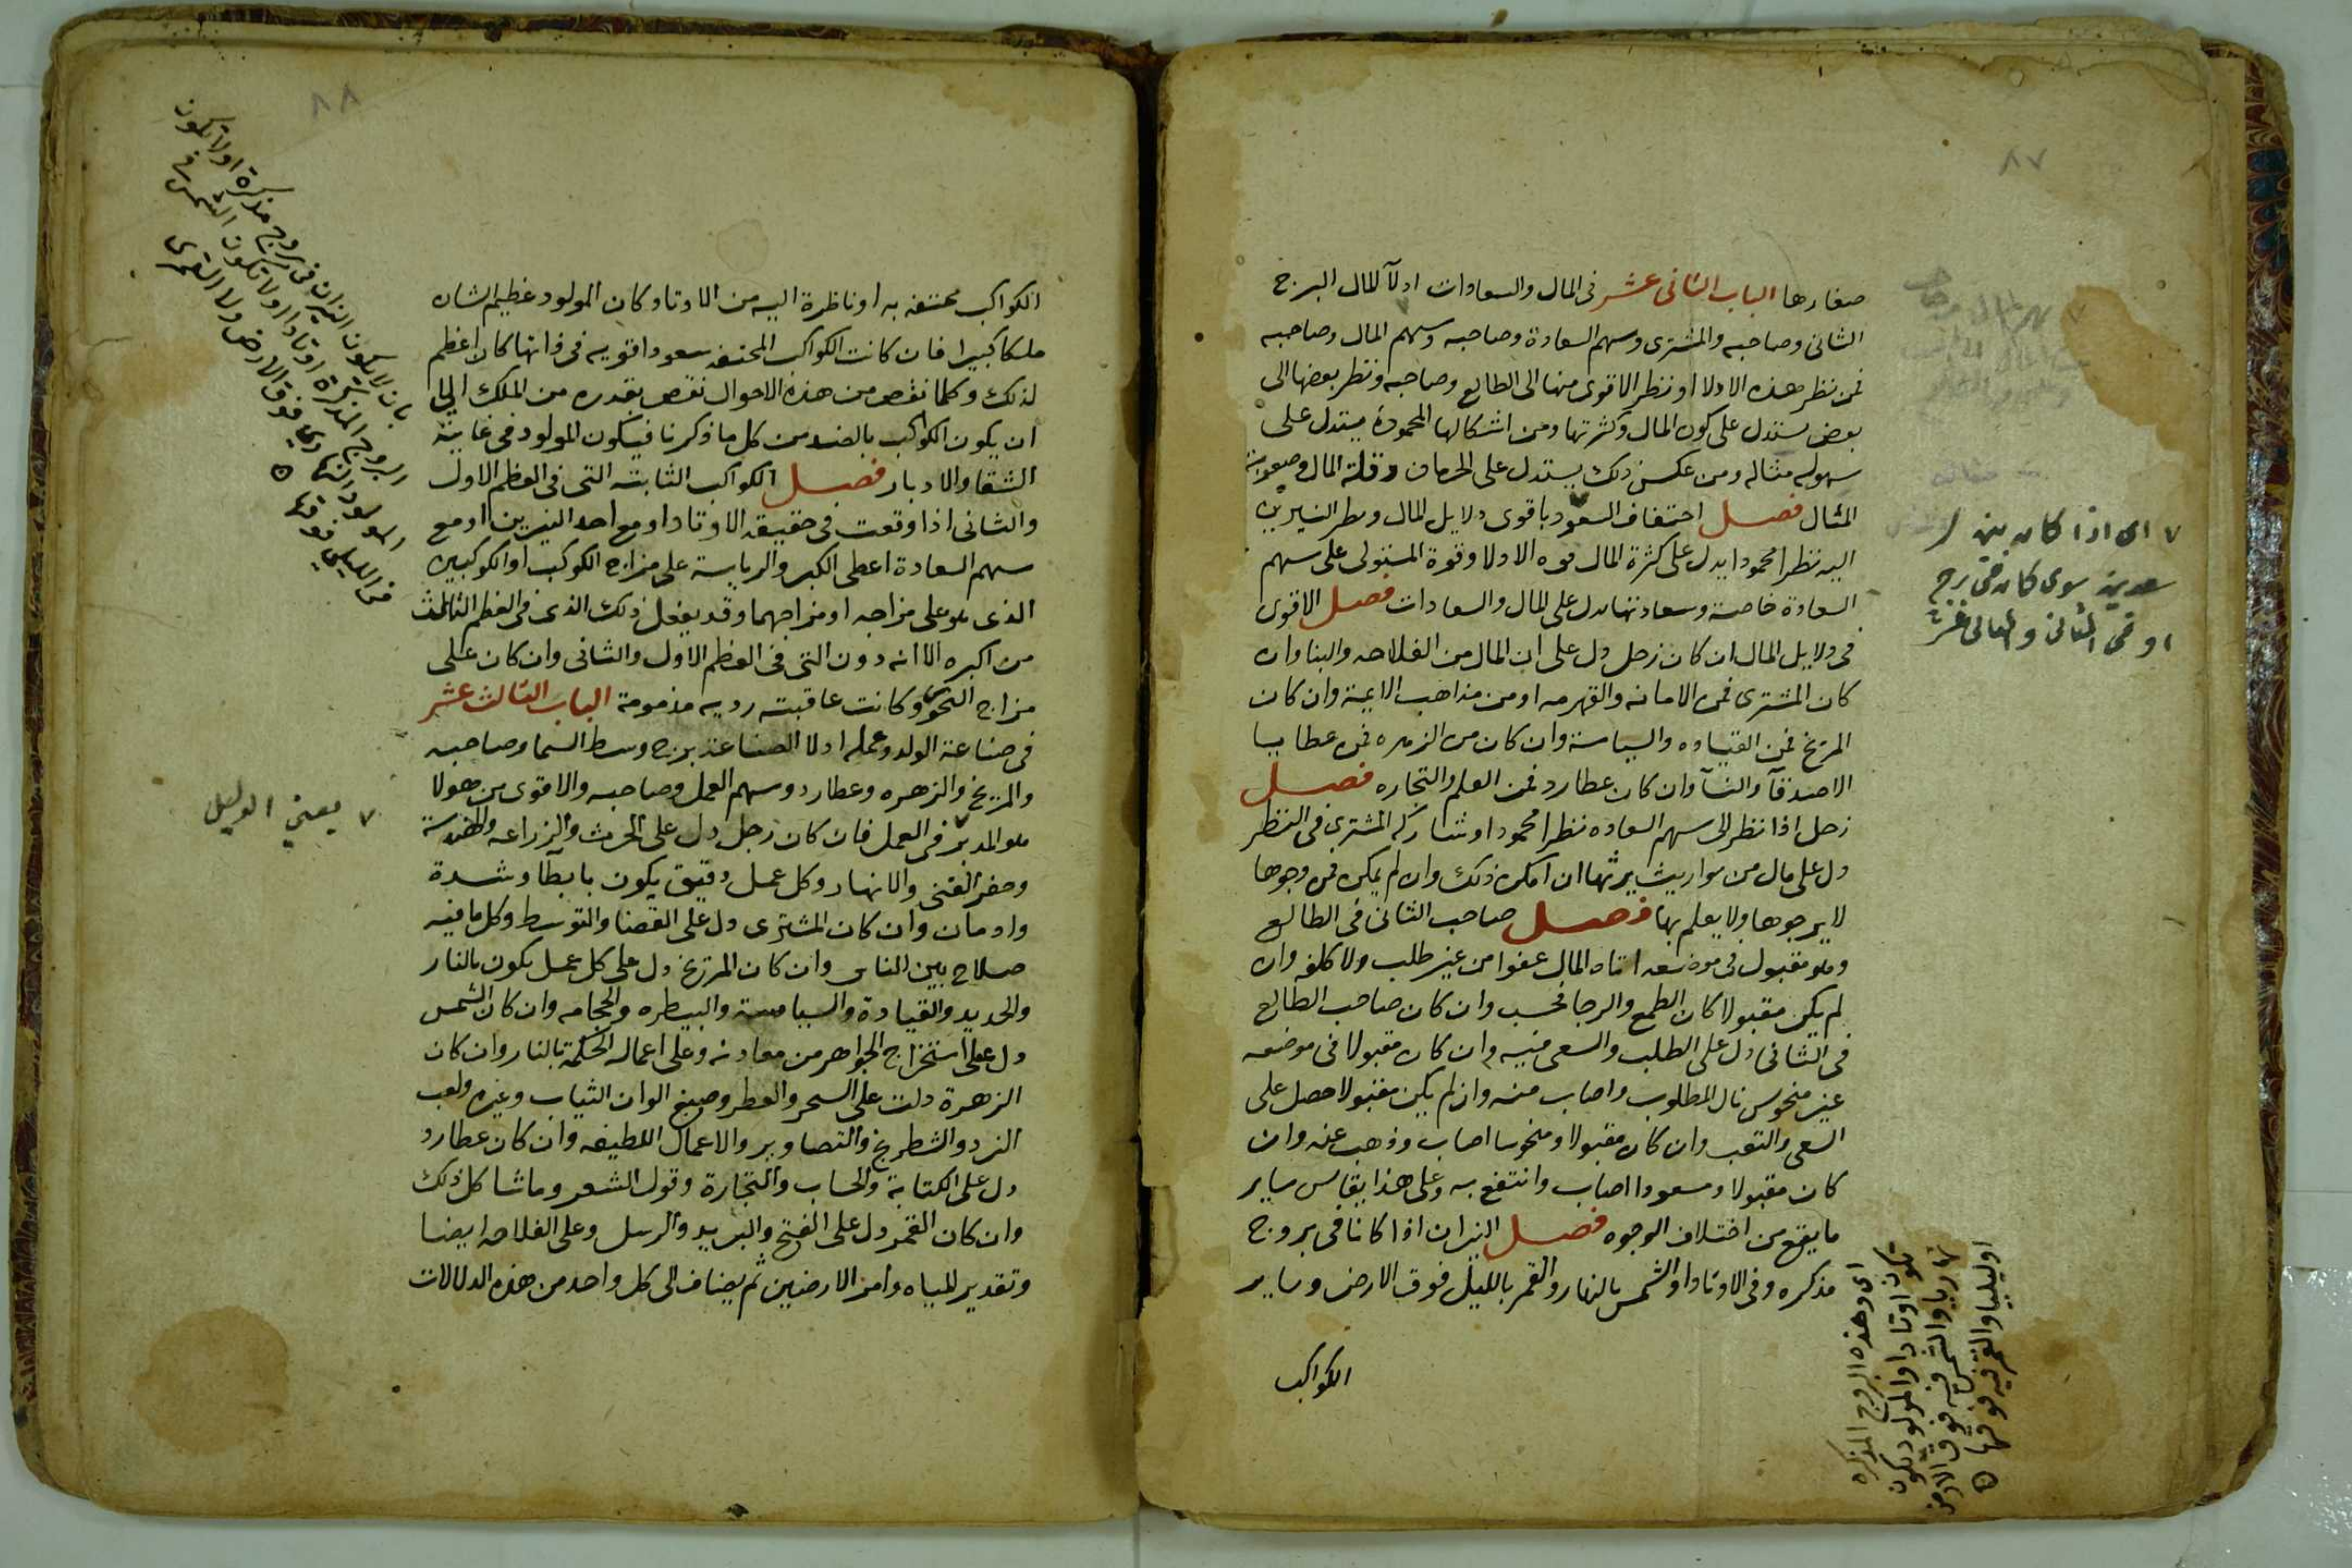 ٨٧
صغارها الباب الثانى عشر فى المال والسعادات ادلآ للمال البرج
الثانى وصاحبه والمشترى وسهم السعادة وصاحبه وسهم المال وصاحبه
فمن نظر هذه الادلا او نظر الاقوى منها الى الطالع وصاحبه ونظر بعضها الى
بعض يستدل على كون المال وكثرتها ومن اشكالها المحمودة يستدل على
سهوله مثاله ومن عكس ذلك يستدل على الحرمان وقلة المال وصعوبة
المثال فصل احتفاف السعود باقوى دلايل المال ونظر النيرين
اليه نظرا محمودا يدل على كثرة المال قوه الادلا وقوة المستولى على سهم
السعادة خاصة وسعادتها يدل على المال والسعادات فصل الاقوى
فى دلايل المال ان كان زحل دل على ان المال من الفلاحه والبنا وان
كان المشترى فمن الامانه والقهرمه او من مذاهب الايمة وان كان
المريخ فمن القياده والسياسة وان كان من الزهره فمن عطايا
الاصدقآ والنسآ وان كان عطارد فمن العلم والتجاره فصل
زحل اذا نظر الى سهم السعاده نظرا محمودا وشاركه المشترى فى النظر
دل على مال من مواريث يرثها ان امكن ذلك وان لم يمكن فمن وجوها
لا يرجوها ولا يعلم بها فصل صاحب الثانى فى الطالع
وهو مقبول فى موضعه اتاه المال عفوا من غير طلب ولا كلفه وان
لم يكن مقبولا كان الطمع والرجا فحسب وان كان صاحب الطالع
فى الثانى دل على الطلب والسعى فيه وان كان مقبولا فى موضعه
غير منحوس نال المطلوب واصاب منه وان لم يكن مقبولا حصل على
السعى والتعب وان كان مقبولا ومنحوسا اصاب وذهب عنه وان
كان مقبولا ومسعودا اصاب وانتفع به وعلى هذا يقايس ساير
ما يقع من اختلاف الوجوه فصل النيران اذا كانا فى بروج
مذكره وفى الاوتاد او الشمس بالنهار والقمر بالليل فوق الارض وساير
الكواكب
٧ اى اذا كان بين
سعدين سوى كانا فى برج
او فى الثانى والثانى عشر
اى وهذه البروج المذكره
تكون اوتادا والمولود يكون
نهاريا والشمس فيه فوق الارض
اوليليا والقمر فيه فوقها
٨٨
الكواكب محتفه به او ناظرة اليه من الاوتاد كان المولود عظيم الشان
ملكا كبيرا فان كانت الكواكب المحتفه سعودا قويه فى ذاتها كان اعظم
لذلك وكلما نقص من هذه الاحوال نقص بقدره من الملك الى
ان يكون الكواكب بالضد من كل ما ذكرنا فيكون المولود فى غاية
الشقا والادبار فصل الكواكب الثابته التى فى العظم الاول
والثانى اذا وقعت فى حقيقه الاوتاد او مع احد النيرين او مع
سهم السعادة اعطى الكبر والرياسة على مزاج الكوكب او الكوكبين
الذى هو على مزاجه او مزاجهما وقد يفعل ذلك الذى فى العظم الثالث
من اكبره الا انه دون التى فى العظم الاول والثانى وان كان على
مزاج النحوس وكانت عاقبته رديه مذمومة الباب الثالث عشر
فى صناعة الولد وعمله ادلا الصناعة برج وسط السما وصاحبه
والمريخ والزهره وعطارد وسهم العمل وصاحبه والاقوى من هولا
هو المدبر فى العمل فان كان زحل دل على الحرث والزراعه والهندسة
وحفر القنى والانهار وكل عمل دقيق يكون بابطآ وشدة
وادمان وان كان المشترى دل على القضا والتوسط وكل ما فيه
صلاح بين الناس وان كان المريخ دل على كل عمل يكون بالنار
والحديد والقيادة والسياسة والبيطره والحجامه وان كان الشمس
دل على استخراج الجواهر من معادنه وعلى اعمال الحكمة بالنار وان كان
الزهرة دلت على السحر والعطر وصبغ الوان الثياب وغيره ولعب
النرد والشطرنج والتصاوير والاعمال اللطيفه وان كان عطارد
دل على الكتابة والحساب والتجارة وقول الشعر وما شاكل ذلك
وان كان القمر دل على الفتح والبريد والرسل وعلى الفلاحه ايضا
وتقدير المياه وامر الارضين ثم يضاف الى كل واحد من هذه الدلالات
بان لا يكون النيران فى بروج مذكرة او لا تكون
البروج المذكرة اوتادا او لا تكون الشمس فى
المولود النهارى فوق الارض ولا القمر فى
الليلى فوقها
٧ يعنى الدليل